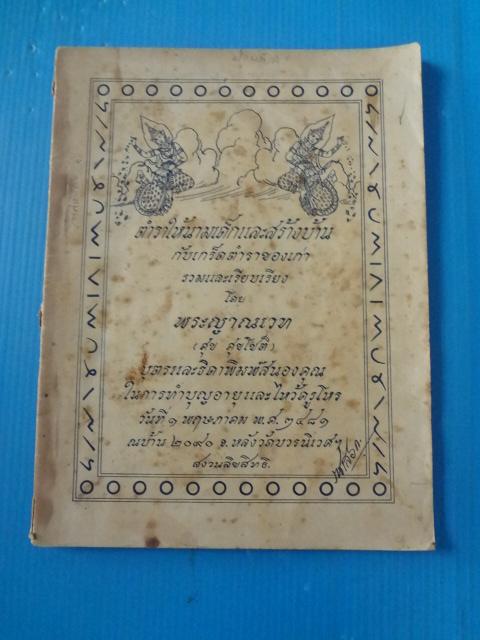 ตำราให้นามเด็กและสร้างบ้าน
กับเกร็ดตำราของเก่า
รวมและเรียบเรียง
โดย
พระญาณเวท
(สุข สุขโชติ)
บุตรและธิดาพิมพ์สนองคุณ
ในการทำบุญอายุและไหว้ครูโหร
วันที่ ๑ พฤษภาคม พ.ศ. ๒๔๘๑
ณบ้าน ๒๐๙๐ จ. หลังวัดบวรนิเวศฯ
สงวนลิขสิทธิ